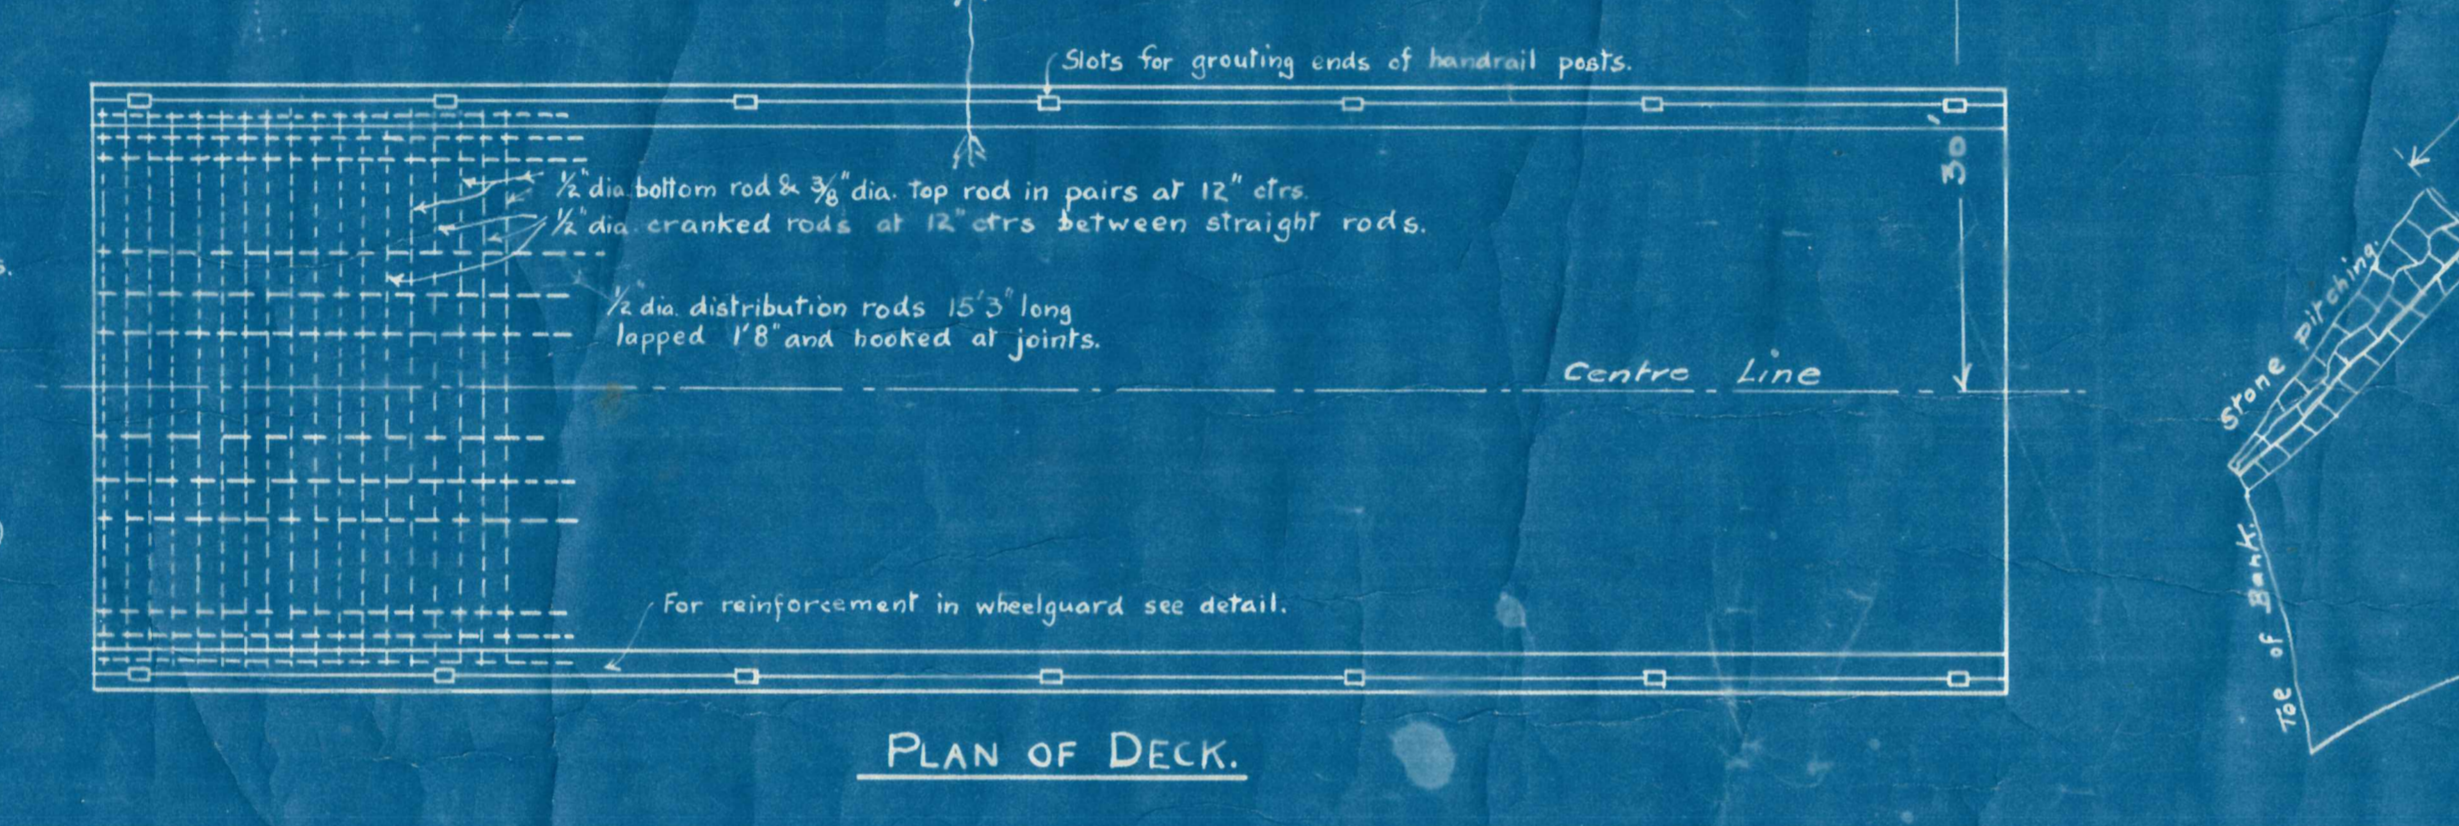 Slots for grouting ends of handrail posts.
30'
½" dia. bottom rod & ⅜" dia. top rod in pairs at 12" ctrs.
½" dia. cranked rods at 12" ctrs between straight rods.
½" dia. distribution rods 15'3" long
lapped 1'8" and hooked at joints.
Centre Line
For reinforcement in wheelguard see detail.
PLAN OF DECK.
Stone pitching.
Toe of Bank.